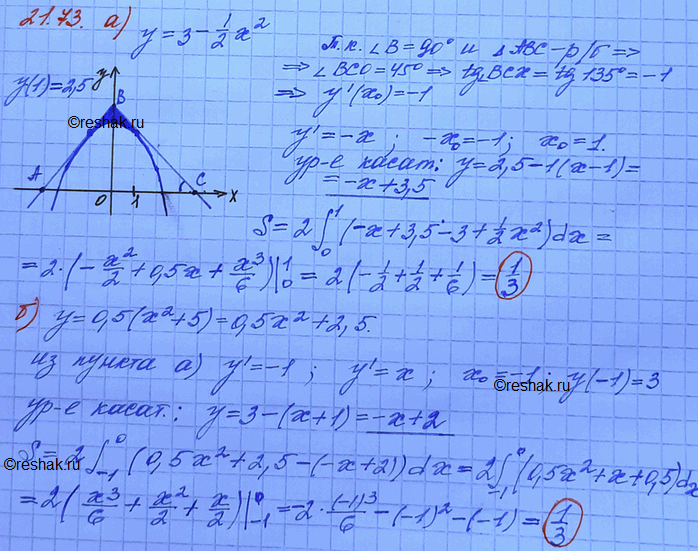 21.73. а) y = 3 - 1/2 x²
Т.к. ∠B = 90° и △ABC - р/б ⇒
⇒ ∠BCO = 45° ⇒ tg∠BCx = tg 135° = -1
⇒ y'(x₀) = -1
y(1) = 2,5
y
B
©reshak.ru
A
O
1
C
x
y' = -x ; -x₀ = -1 ; x₀ = 1.
ур-е касат: y = 2,5 - 1(x - 1) =
= -x + 3,5
S = 2 ∫₀¹ (-x + 3,5 - 3 + 1/2 x²) dx =
= 2·(-x²/2 + 0,5x + x³/6)|₀¹ = 2(-1/2 + 1/2 + 1/6) = 1/3
б) y = 0,5(x² + 5) = 0,5x² + 2,5.
из пункта а) y' = -1 ; y' = x ; x₀ = -1 ; y(-1) = 3
©reshak.ru
ур-е касат.: y = 3 - (x + 1) = -x + 2
S = 2 ∫₋₁⁰ (0,5x² + 2,5 - (-x + 2)) dx = 2 ∫₋₁⁰ (0,5x² + x + 0,5) dx
©reshak.ru
= 2(x³/6 + x²/2 + x/2)|₋₁⁰ = -2·(-1)³/6 - (-1)² - (-1) = 1/3